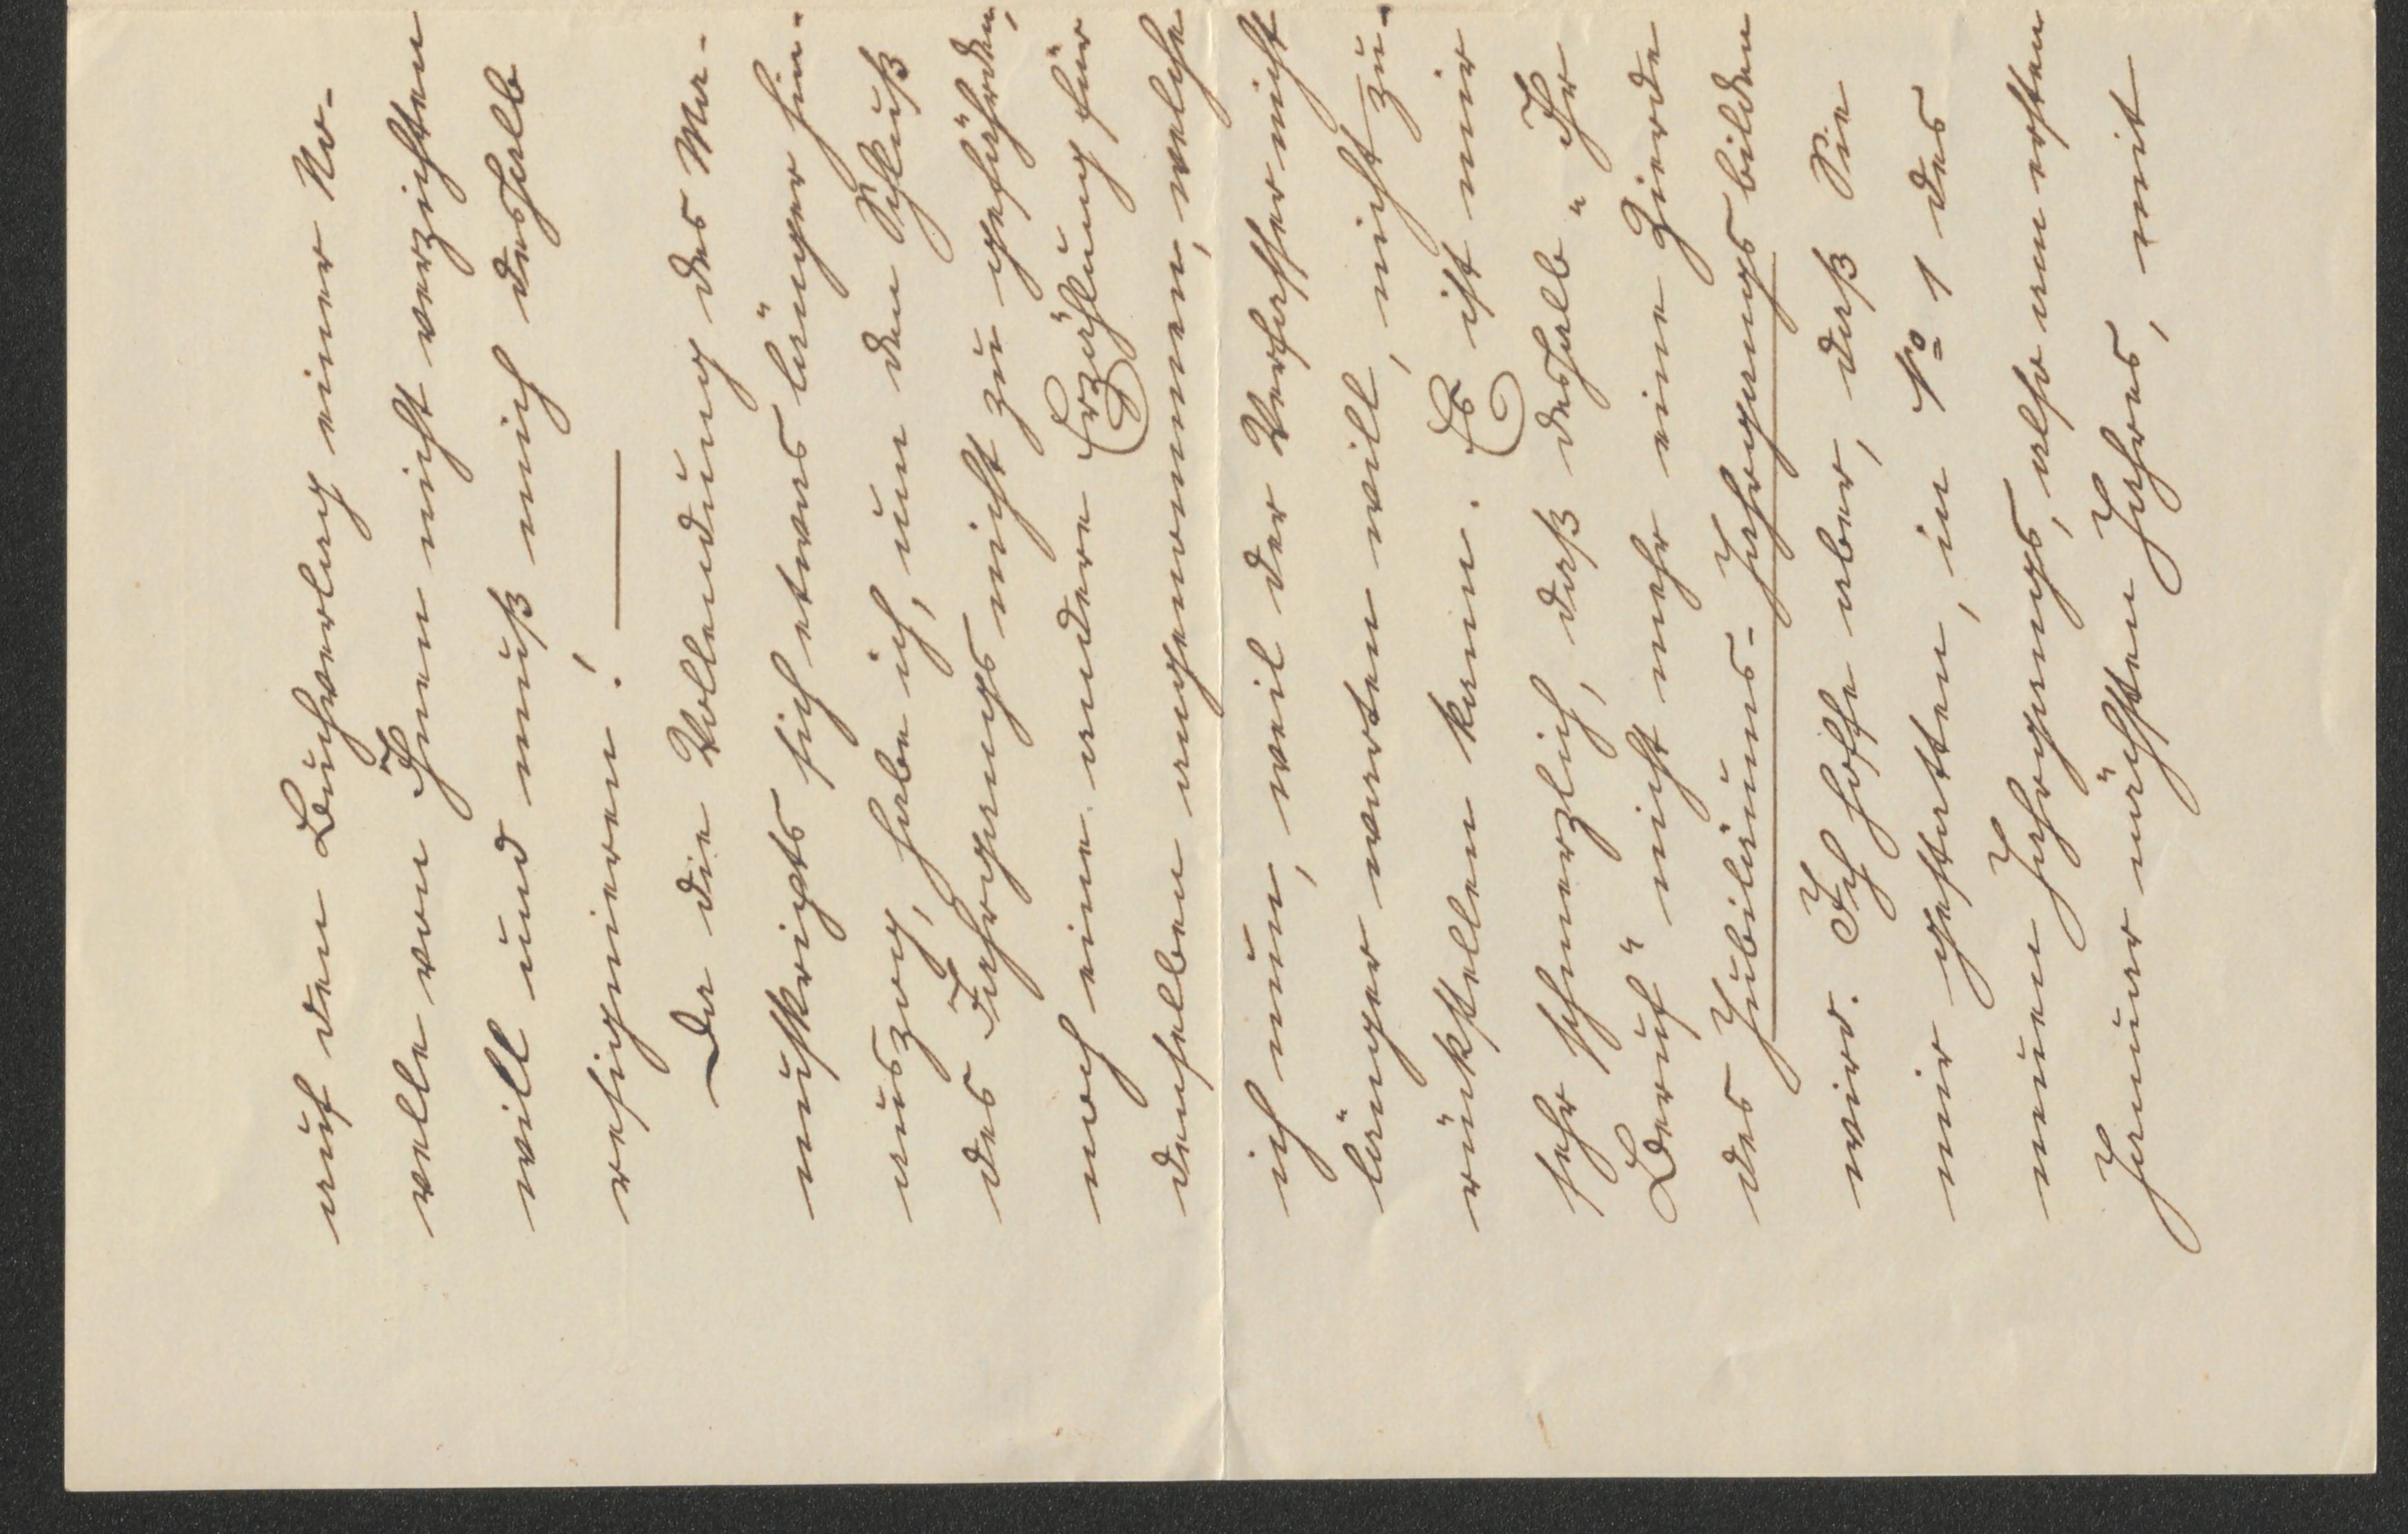 auf den Buchverlag einer No-
velle von Ihnen nicht verzichten
will und muß mich deshalb
resignieren! —
Da die Vollendung des Ma-
nuskripts sich etwas länger hin-
auszog, habe ich, um den Schluß
des Jahrgangs nicht zu gefährden,
noch eine andere Erzählung für
denselben angenommen, welche
ich nun, weil der Verfasser nicht
länger warten will, nicht zu-
rückstellen kann. Es ist mir
sehr schmerzlich, daß deshalb „Ihr
Beruf“ nicht mehr eine Zierde
des Jubiläums-Jahrgangs bilden
wird. Ich hoffe aber, daß Sie
mir gestatten, in No 1 des
neuen Jahrgangs, also am ersten
Januar nächsten Jahres, mit